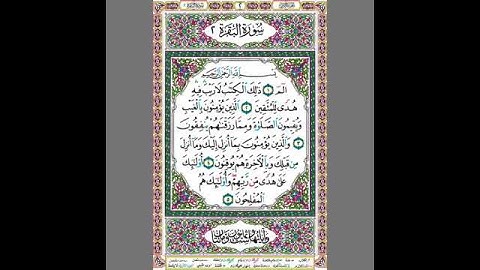 سُورَةُ البَقَرَةِ ٢
بِسْمِ اللَّهِ الرَّحْمَٰنِ الرَّحِيمِ
الٓمٓ ۝١ ذَٰلِكَ الْكِتَٰبُ لَا رَيْبَ فِيهِ
هُدًى لِّلْمُتَّقِينَ ۝٢ الَّذِينَ يُؤْمِنُونَ بِالْغَيْبِ
وَيُقِيمُونَ الصَّلَوٰةَ وَمِمَّا رَزَقْنَٰهُمْ يُنفِقُونَ
۝٣ وَالَّذِينَ يُؤْمِنُونَ بِمَا أُنزِلَ إِلَيْكَ وَمَا أُنزِلَ
مِن قَبْلِكَ وَبِالْآخِرَةِ هُمْ يُوقِنُونَ ۝٤ أُولَٰئِكَ
عَلَىٰ هُدًى مِّن رَّبِّهِمْ وَأُولَٰئِكَ هُمُ
الْمُفْلِحُونَ ۝٥